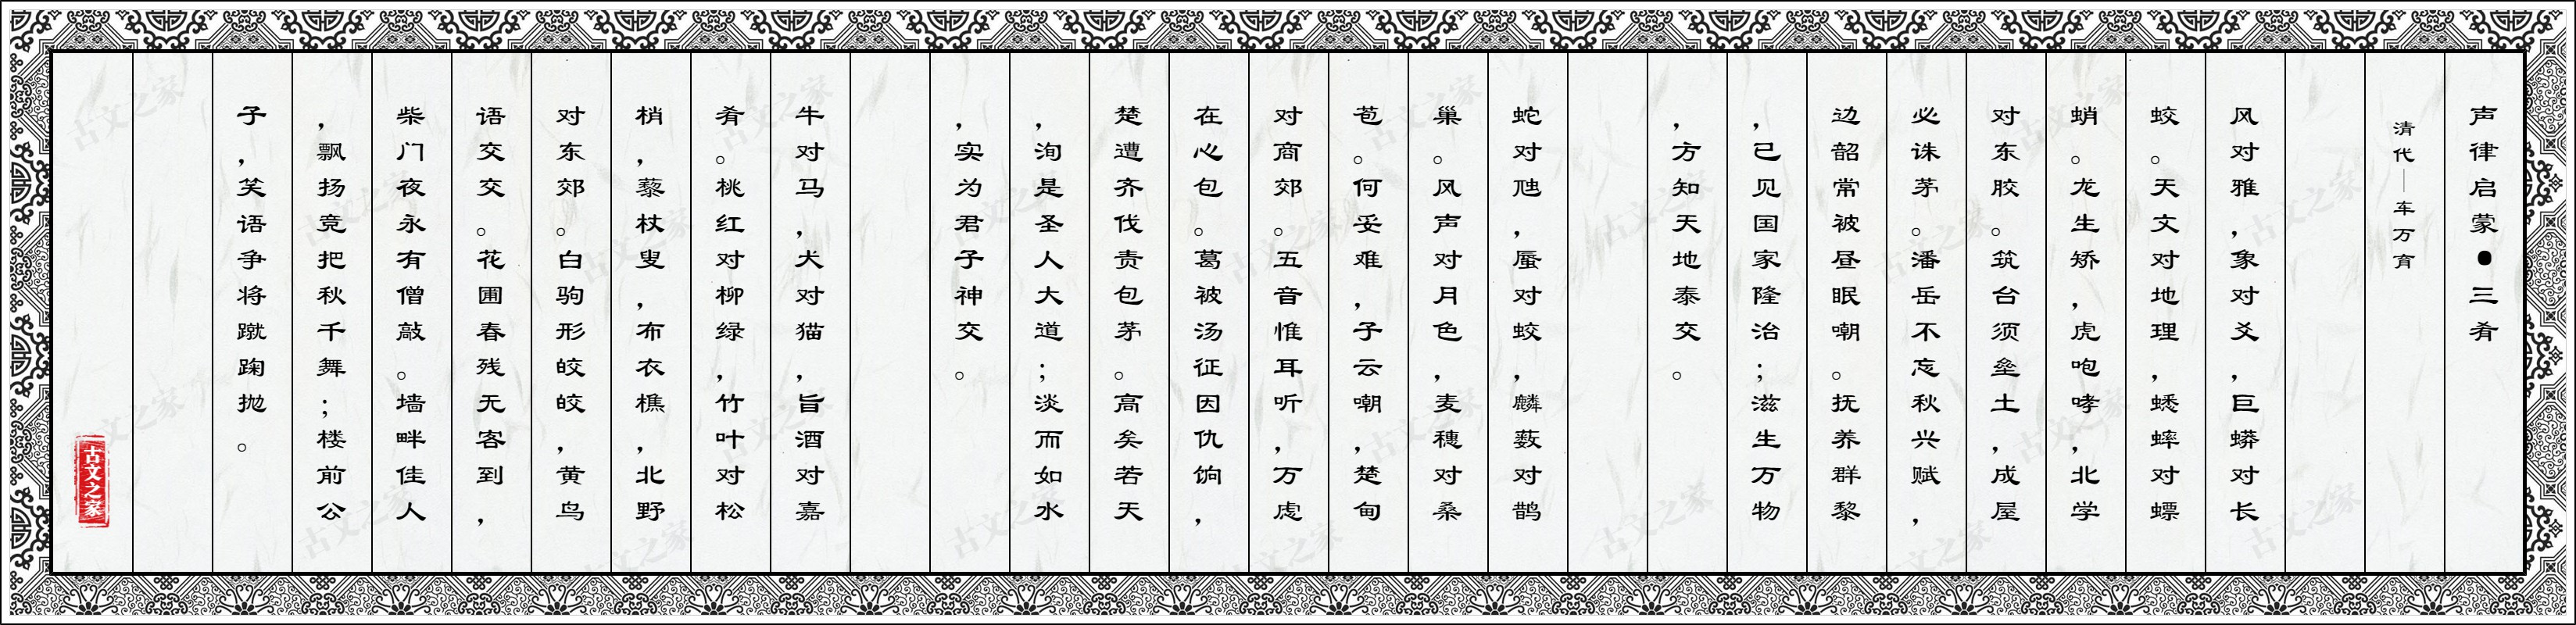 声律启蒙●三肴
清代—车万育
风对雅，象对爻，巨蟒对长
蛟。天文对地理，蟋蟀对螵
蛸。龙生矫，虎咆哮，北学
对东胶。筑台须垒土，成屋
必诛茅。潘岳不忘秋兴赋，
边韶常被昼眠嘲。抚养群黎
，已见国家隆治；滋生万物
，方知天地泰交。
蛇对虺，蜃对蛟，麟薮对鹊
巢。风声对月色，麦穗对桑
苞。何妥难，子云嘲，楚甸
对商郊。五音惟耳听，万虑
在心包。葛被汤征因仇饷，
楚遭齐伐责包茅。高矣若天
，洵是圣人大道；淡而如水
，实为君子神交。
牛对马，犬对猫，旨酒对嘉
肴。桃红对柳绿，竹叶对松
梢，藜杖叟，布衣樵，北野
对东郊。白驹形皎皎，黄鸟
语交交。花圃春残无客到，
柴门夜永有僧敲。墙畔佳人
，飘扬竞把秋千舞；楼前公
子，笑语争将蹴踘抛。
古文之家